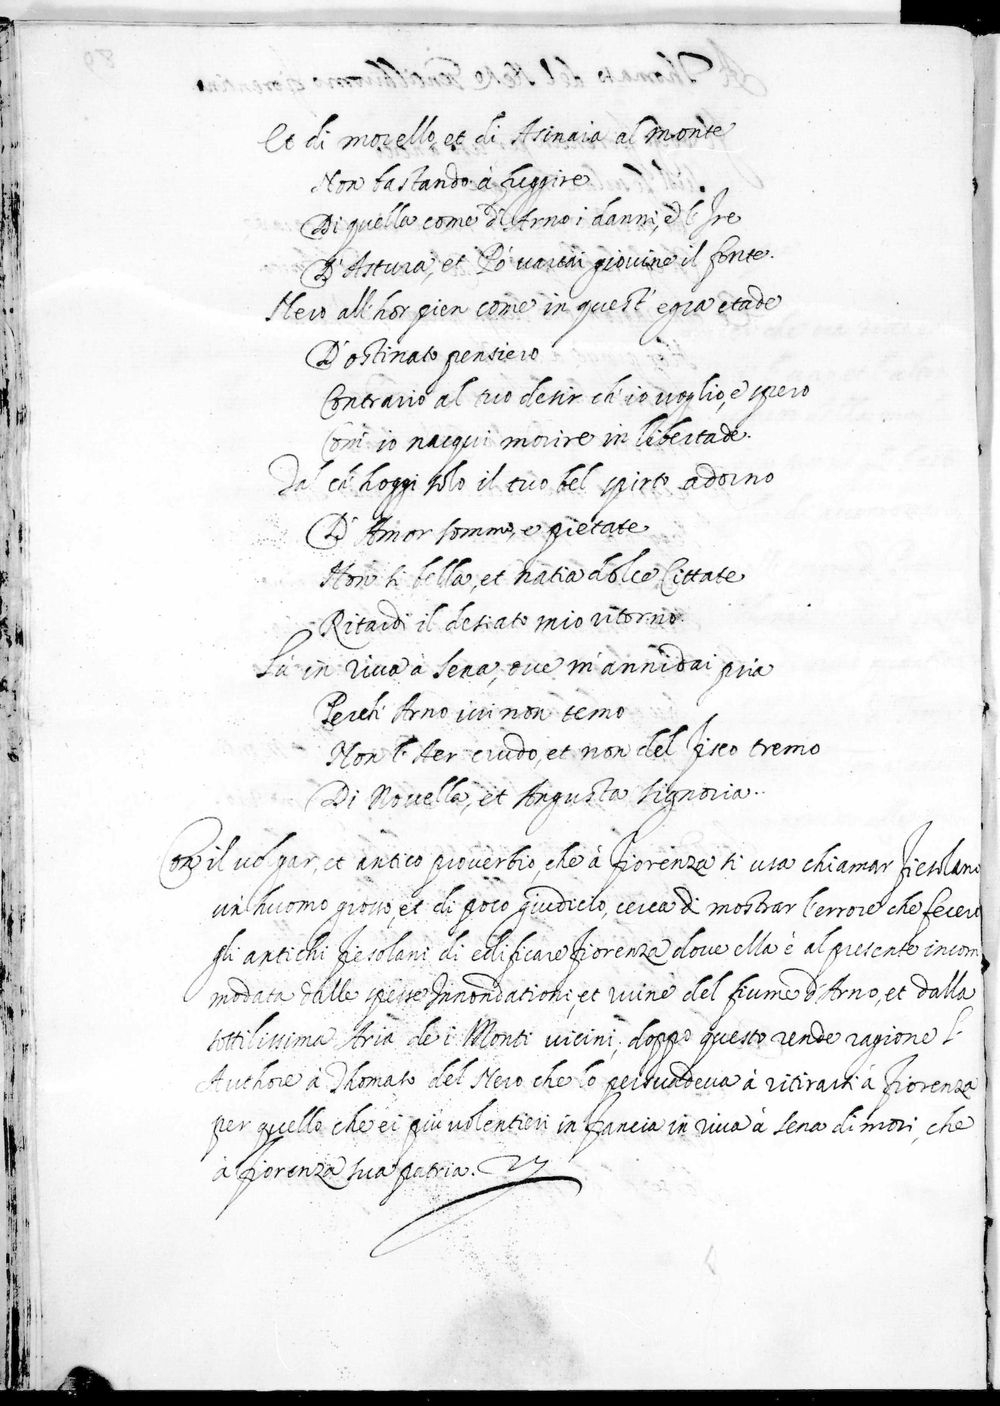 Et di morello, et di Asinaia al monte
Non bastando à fuggire
Di quella come d'Arno i danni, e l'Ire
D'Astura, et Po varcai giovine il fonte.
Nero all'hor pien come in quest' egra etade
D'ostinato pensiero
Contrario al tuo desir ch'io voglio, e spero
Com' io nacqui morire in libertade.
Tal ch' hoggi solo il tuo bel spirto adorno
D' Amor sommo, e pietate
Non sì bella, et natia dolce Cittate
Ritardi il desiato mio ritorno.
Là in riva à Sena, ove m'annidai pria
Perch' Arno ivi non temo
Non l'Aer crudo, et non del fisco tremo
Di Novella, et Angusta signoria.
Con il volgar, et antico proverbio, che à Fiorenza si usa chiamar Fiesolano
un'huomo grosso, et di poco giudicio, cerca di mostrar l'errore che fecero
gli antichi fiesolani di edificare Fiorenza dove ella è al presente incom
modata dalle spesse Innondationi, et ruine del fiume d'Arno, et dalla
sottilissima Aria de i Monti vicini; doppo questo rende ragione l'
Authore à Thomaso del Nero che lo persuadeva à ritirarsi à Fiorenza
per quello che ei più volentieri in francia in riva à Sena dimori, che
à fiorenza sua patria.